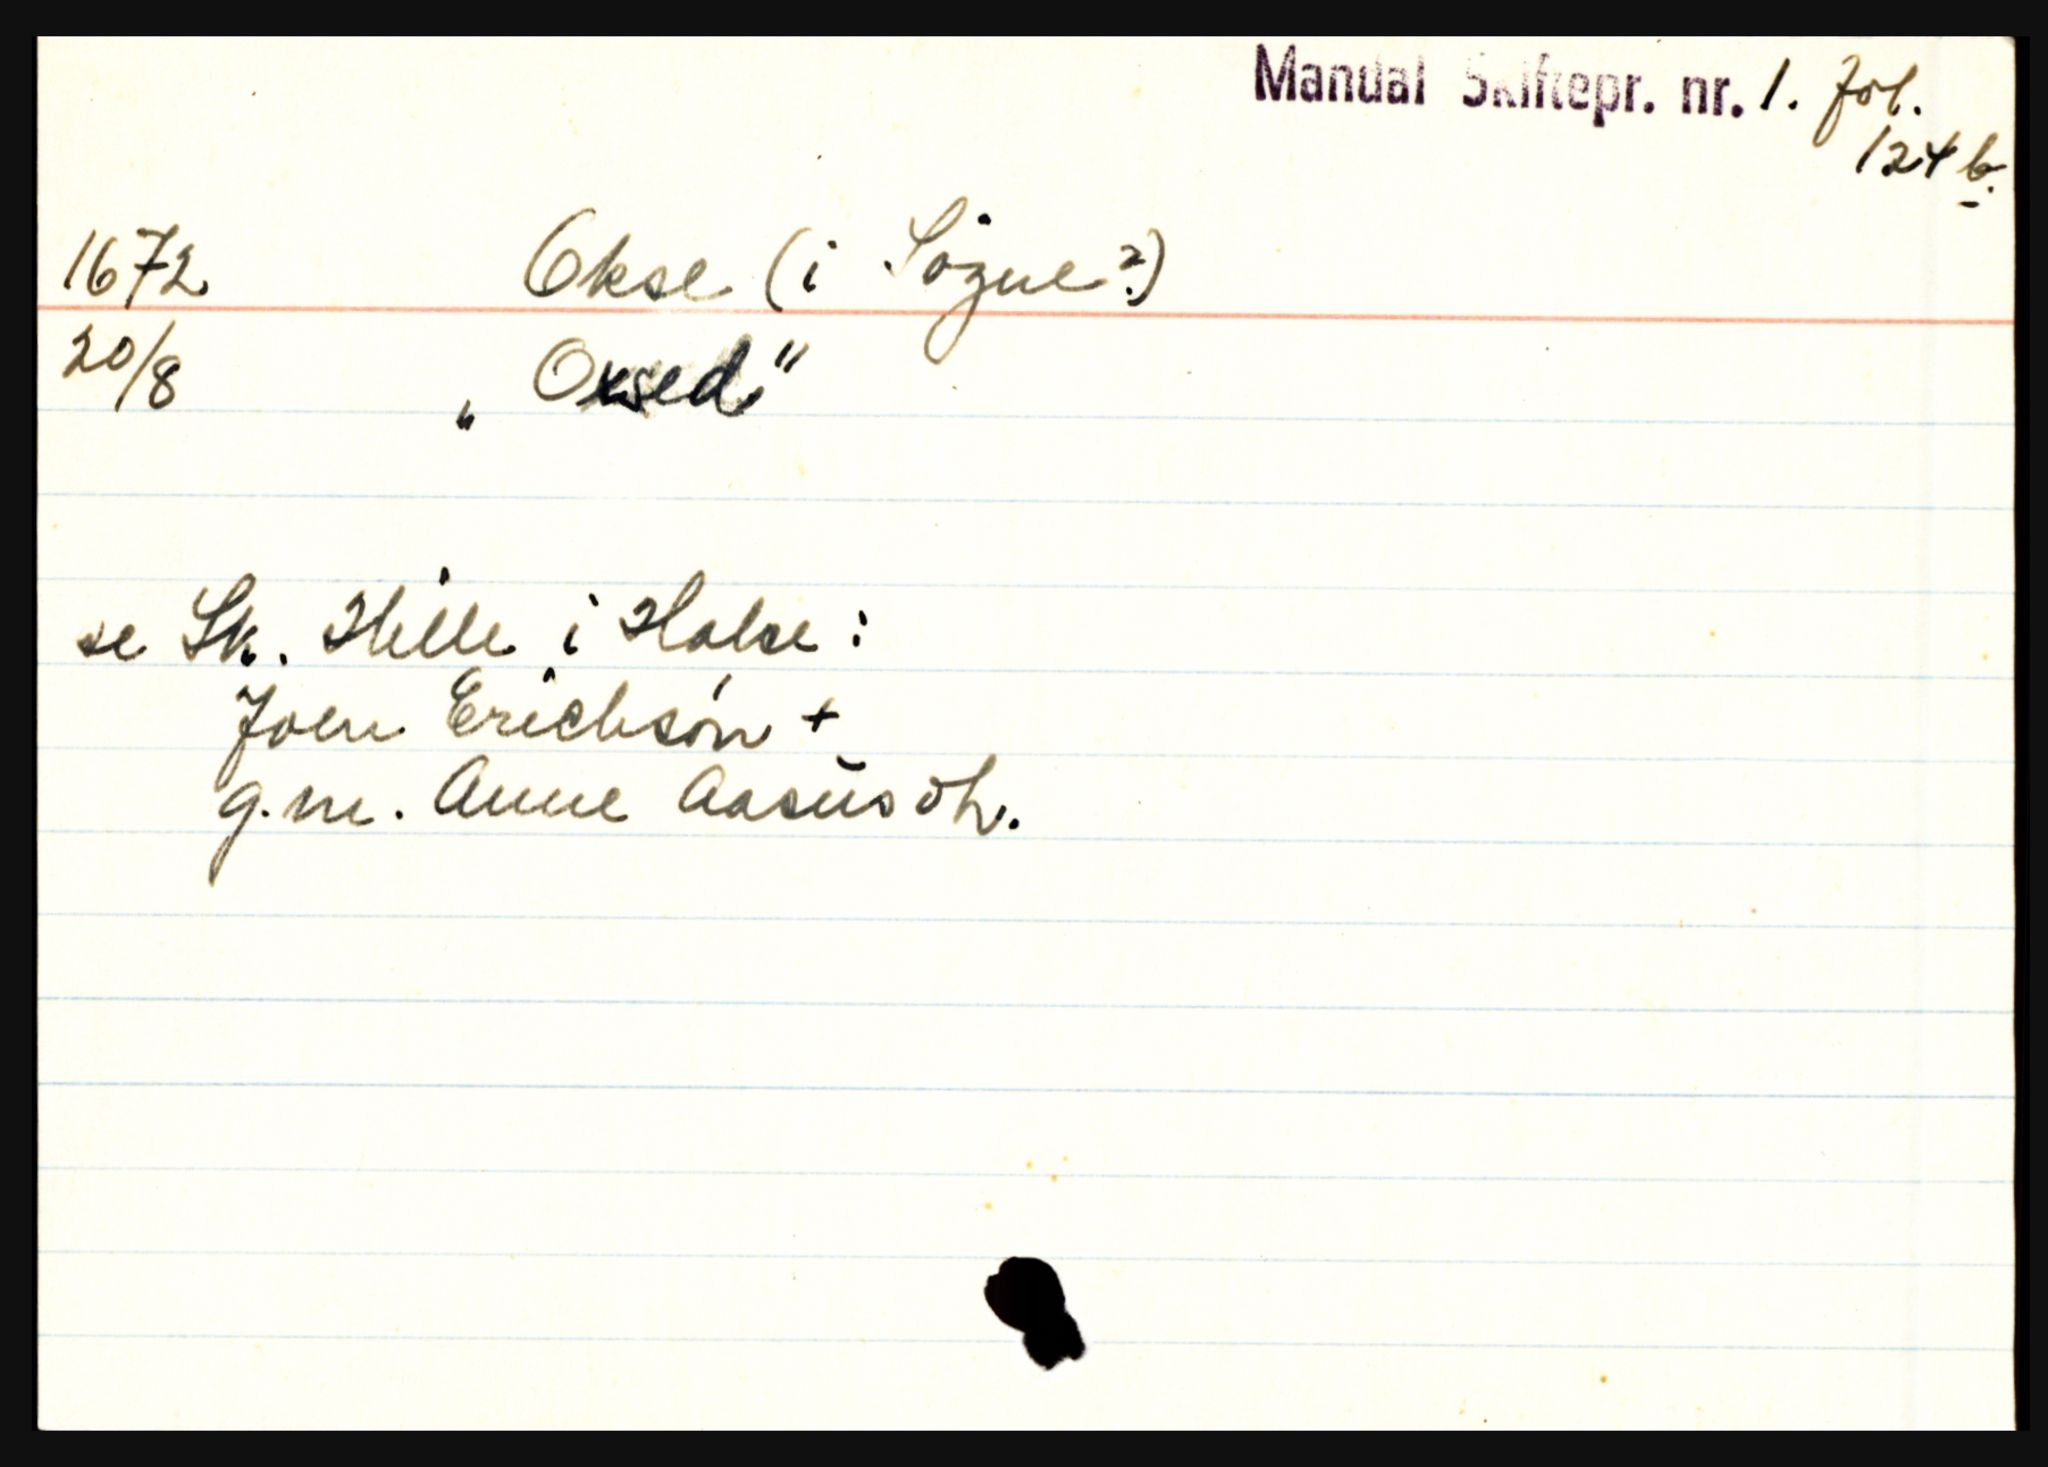 Mandal Skiftepr. nr. 1. fol.
124 b.
1672 Okse (i Søgne?)
20/8 „Oksed"
se Sk. Hille i Halse:
Joen Erichsøn +
g.m. Anne Aasŭsdt.